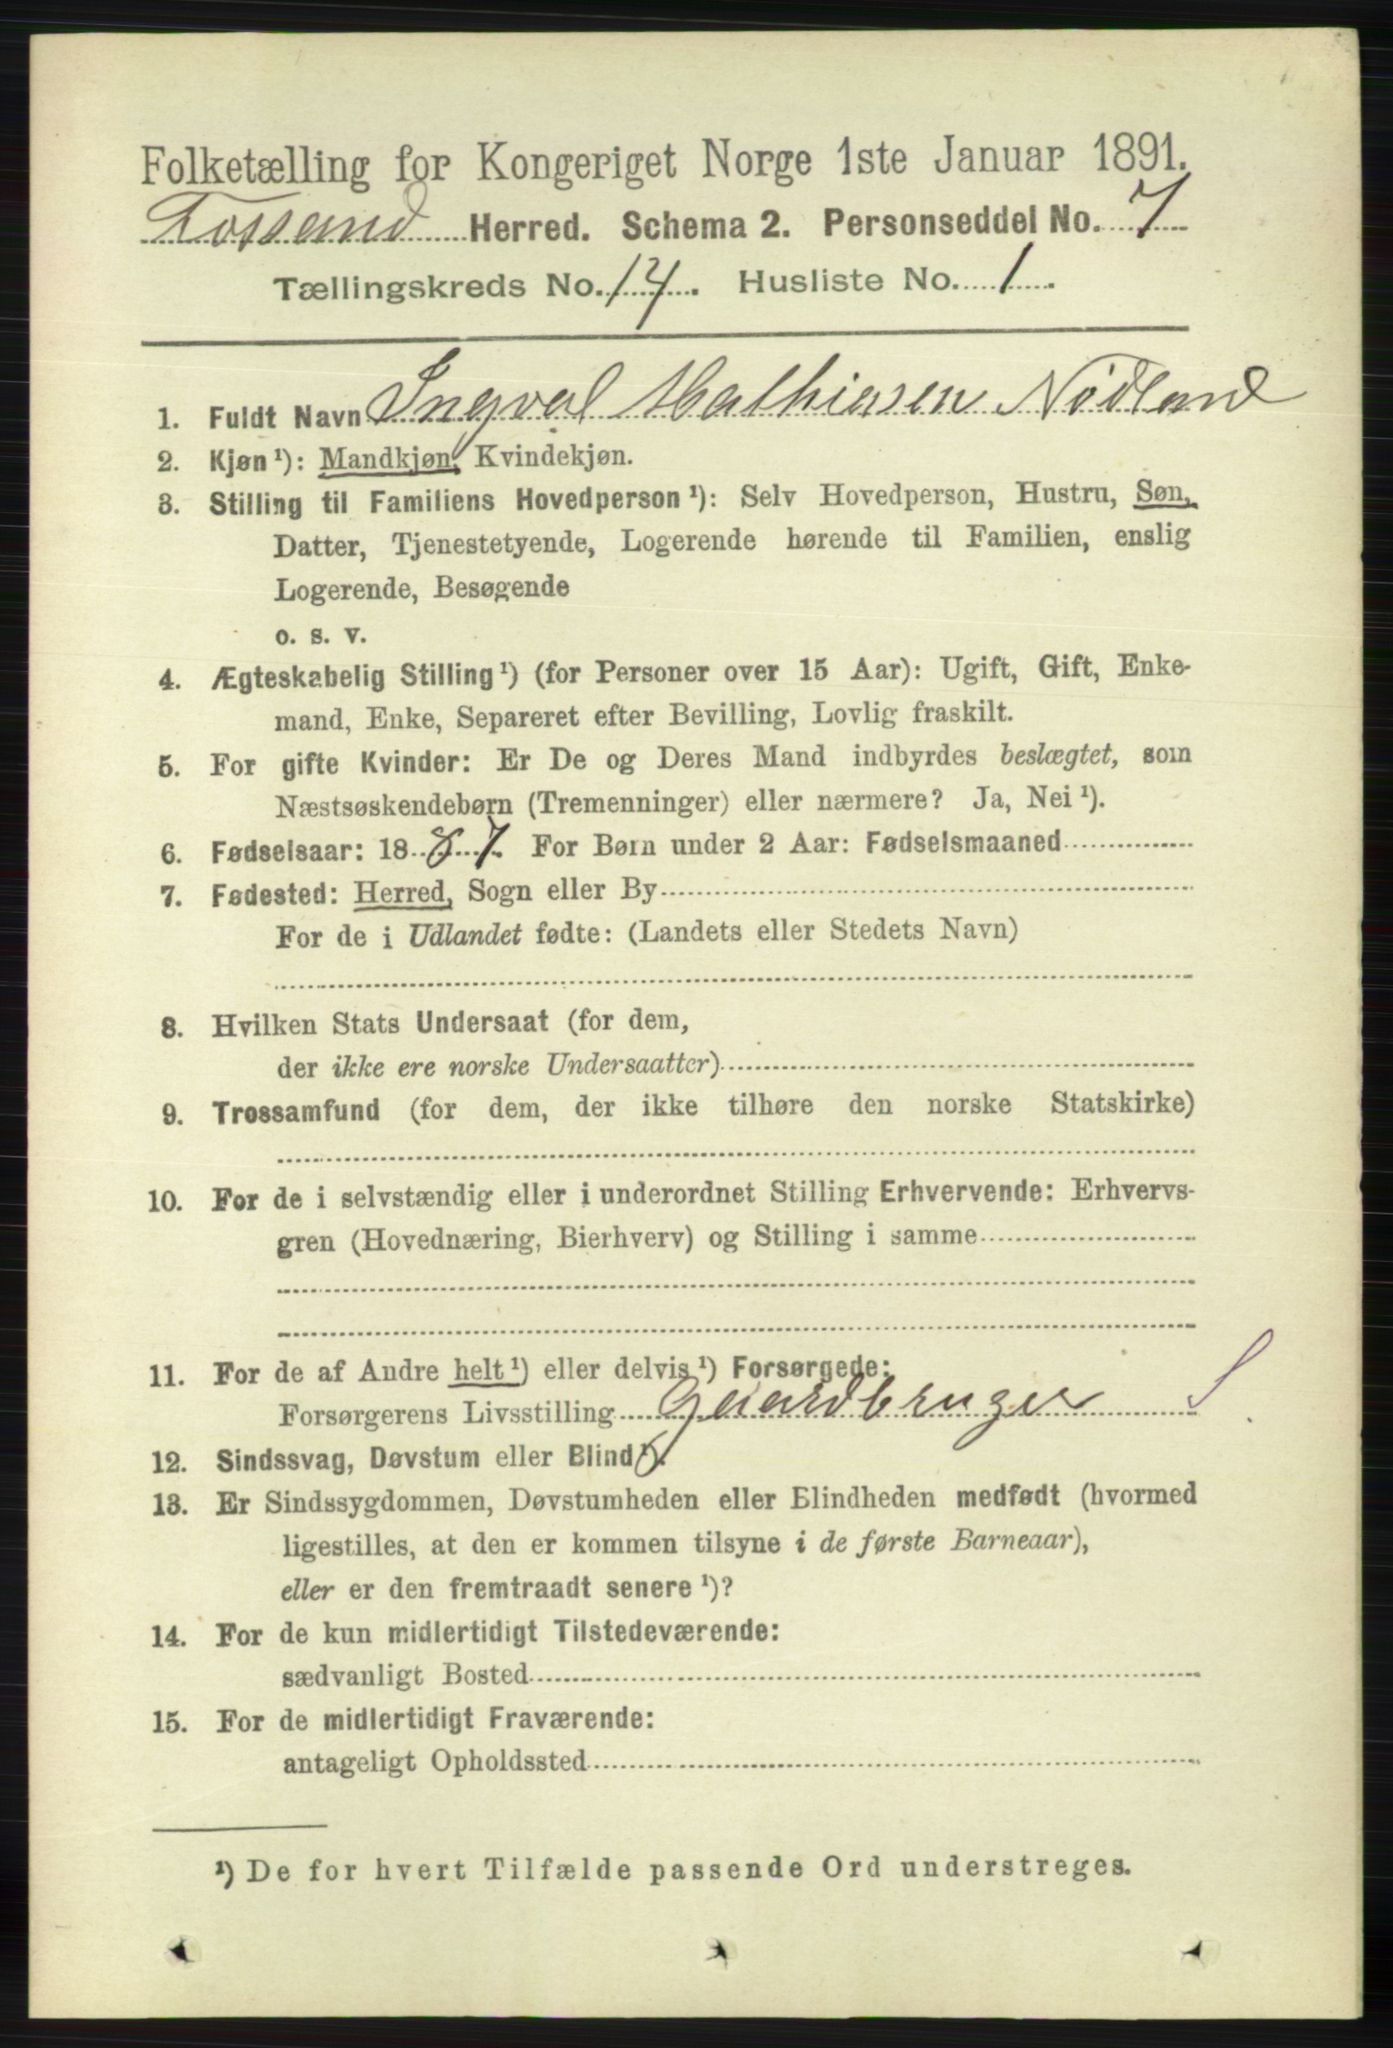 Folketælling for Kongeriget Norge 1ste Januar 1891.
Fossand Herred. Schema 2. Personseddel No. 7
Tællingskreds No. 14. Husliste No. 1.
1. Fuldt Navn Ingval Mathiesen Nödland
2. Kjøn ¹): Mandkjøn, Kvindekjøn.
3. Stilling til Familiens Hovedperson ¹): Selv Hovedperson, Hustru, Søn,
Datter, Tjenestetyende, Logerende hørende til Familien, enslig
Logerende, Besøgende
o. s. v.
4. Ægteskabelig Stilling ¹) (for Personer over 15 Aar): Ugift, Gift, Enke-
mand, Enke, Separeret efter Bevilling, Lovlig fraskilt.
5. For gifte Kvinder: Er De og Deres Mand indbyrdes beslægtet, som
Næstsøskendebørn (Tremenninger) eller nærmere? Ja, Nei ¹).
6. Fødselsaar: 1887. For Børn under 2 Aar: Fødselsmaaned
7. Fødested: Herred, Sogn eller By
For de i Udlandet fødte: (Landets eller Stedets Navn)
8. Hvilken Stats Undersaat (for dem,
der ikke ere norske Undersaatter)
9. Trossamfund (for dem, der ikke tilhøre den norske Statskirke)
10. For de i selvstændig eller i underordnet Stilling Erhvervende: Erhvervs-
gren (Hovednæring, Bierhverv) og Stilling i samme
11. For de af Andre helt ¹) eller delvis ¹) Forsørgede:
Forsørgerens Livsstilling Gaardbruger S
12. Sindssvag, Døvstum eller Blind ¹).
13. Er Sindssygdommen, Døvstumheden eller Blindheden medfødt (hvormed
ligestilles, at den er kommen tilsyne i de første Barneaar),
eller er den fremtraadt senere ¹)?
14. For de kun midlertidigt Tilstedeværende:
sædvanligt Bosted
15. For de midlertidigt Fraværende:
antageligt Opholdssted
¹) De for hvert Tilfælde passende Ord understreges.